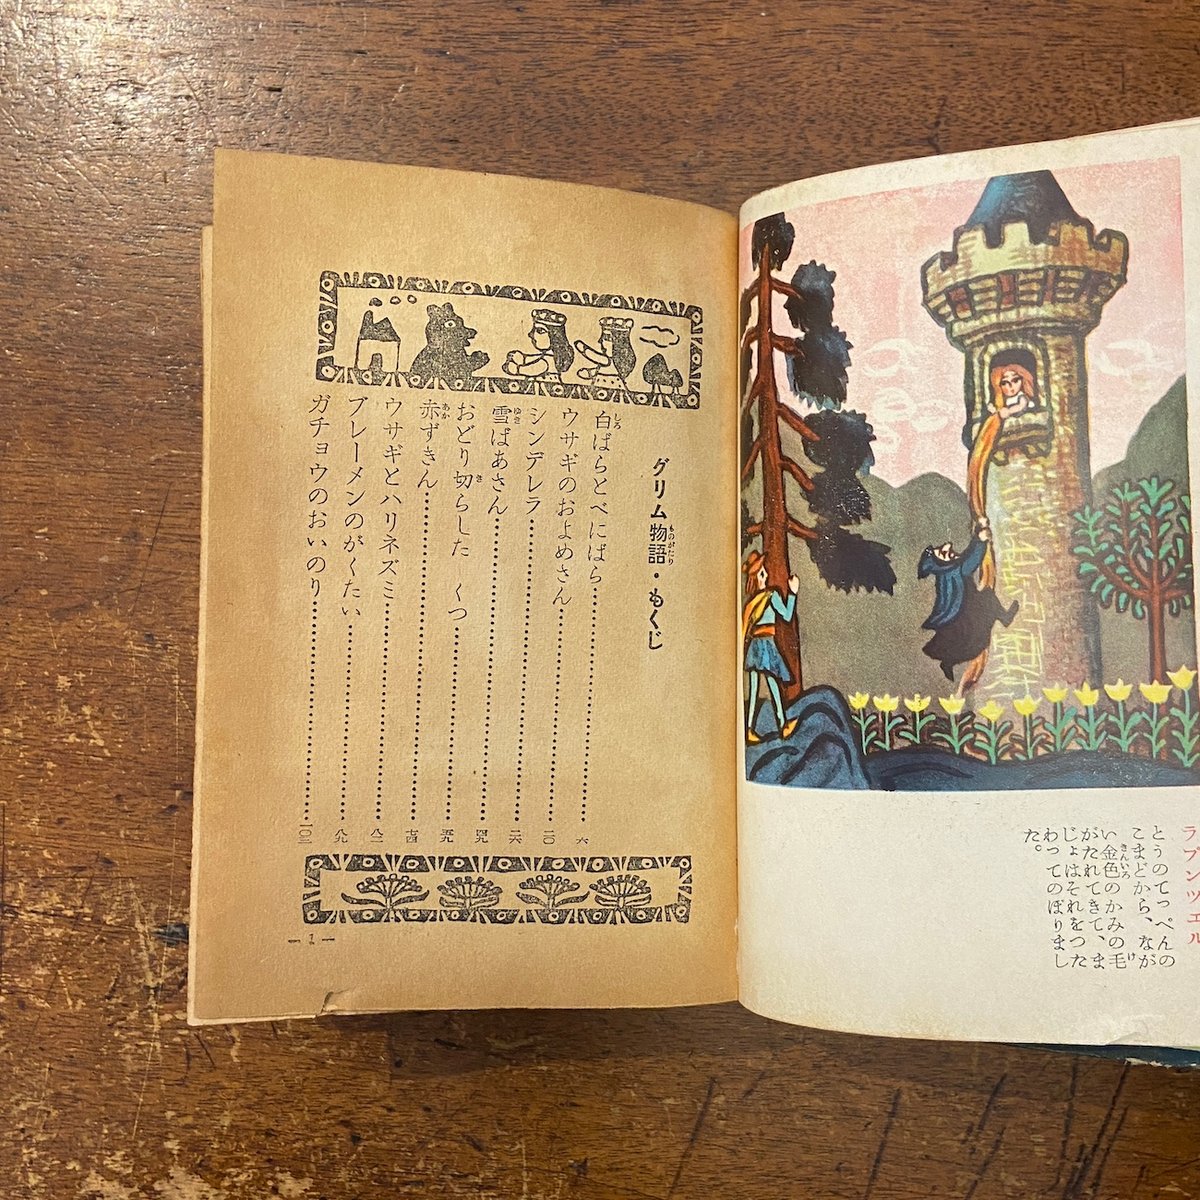 ラプンツェル
とうのてっぺんの
こまどから、なが
い金色のかみの毛
がたれてきて、ま
じょはそれをつた
わってのぼりまし
た。
グリム物語・もくじ
白ばらとべにばら……六
ウサギのおよめさん……二〇
シンデレラ……二六
雪ばあさん……四九
おどり切らした くつ……五九
赤ずきん……七四
ウサギとハリネズミ……八二
ブレーメンのがくたい……八九
ガチョウのおいのり……一〇三
- 1 -